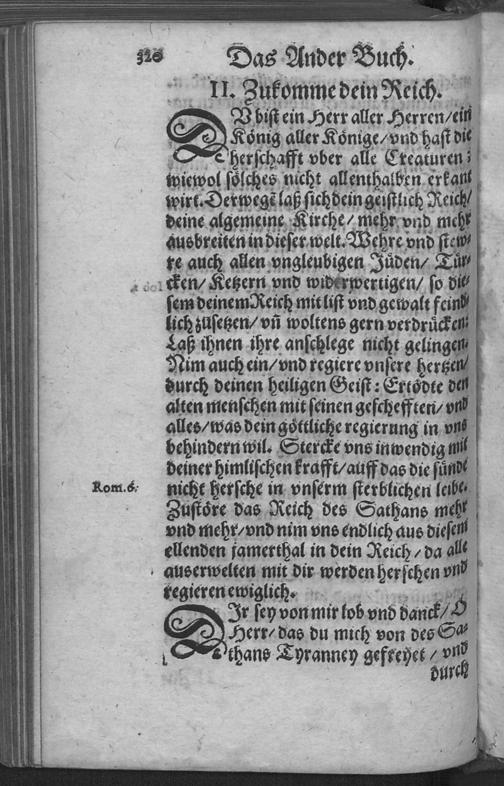 320 Das Ander Buch.
II. Zukomme dein Reich.
DV bist ein Herr aller Herren/ ein
König aller Könige/ vnd hast die
herschafft vber alle Creaturen:
wiewol sölches nicht allenthalben erkant
wirt. Derwegẽ laß sich dein geistlich Reich/
deine algemeine Kirche/ mehr vnd mehr
ausbreiten in dieser welt. Wehre vnd stew-
re auch allen vngleubigen Jüden/ Tür-
cken/ Ketzern vnd widerwertigen/ so die-
sem deinem Reich mit list vnd gewalt feind-
lich züsetzen/ vñ woltens gern verdrücken:
Laß ihnen ihre anschlege nicht gelingen.
Nim auch ein/ vnd regiere vnsere hertzen/
durch deinen heiligen Geist: Ertödte den
alten menschen mit seinen geschefften/ vnd
alles/ was dein göttliche regierung in vns
behindern wil. Stercke vns inwendig mit
deiner himlischen krafft/ auff das die sünde
Rom. 6. nicht hersche in vnserm sterblichen leibe.
Zustöre das Reich des Sathans mehr
vnd mehr/ vnd nim vns endlich aus diesem
ellenden jamerthal in dein Reich/ da alle
auserwelten mit dir werden herschen vnd
regieren ewiglich.
DIr sey von mir lob vnd danck/ O
Herr/ das du mich von des Sa-
thans Tyranney gefreyet/ vnd
durch